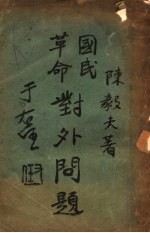 陳毅夫著
國民
革命對外問題
于右任